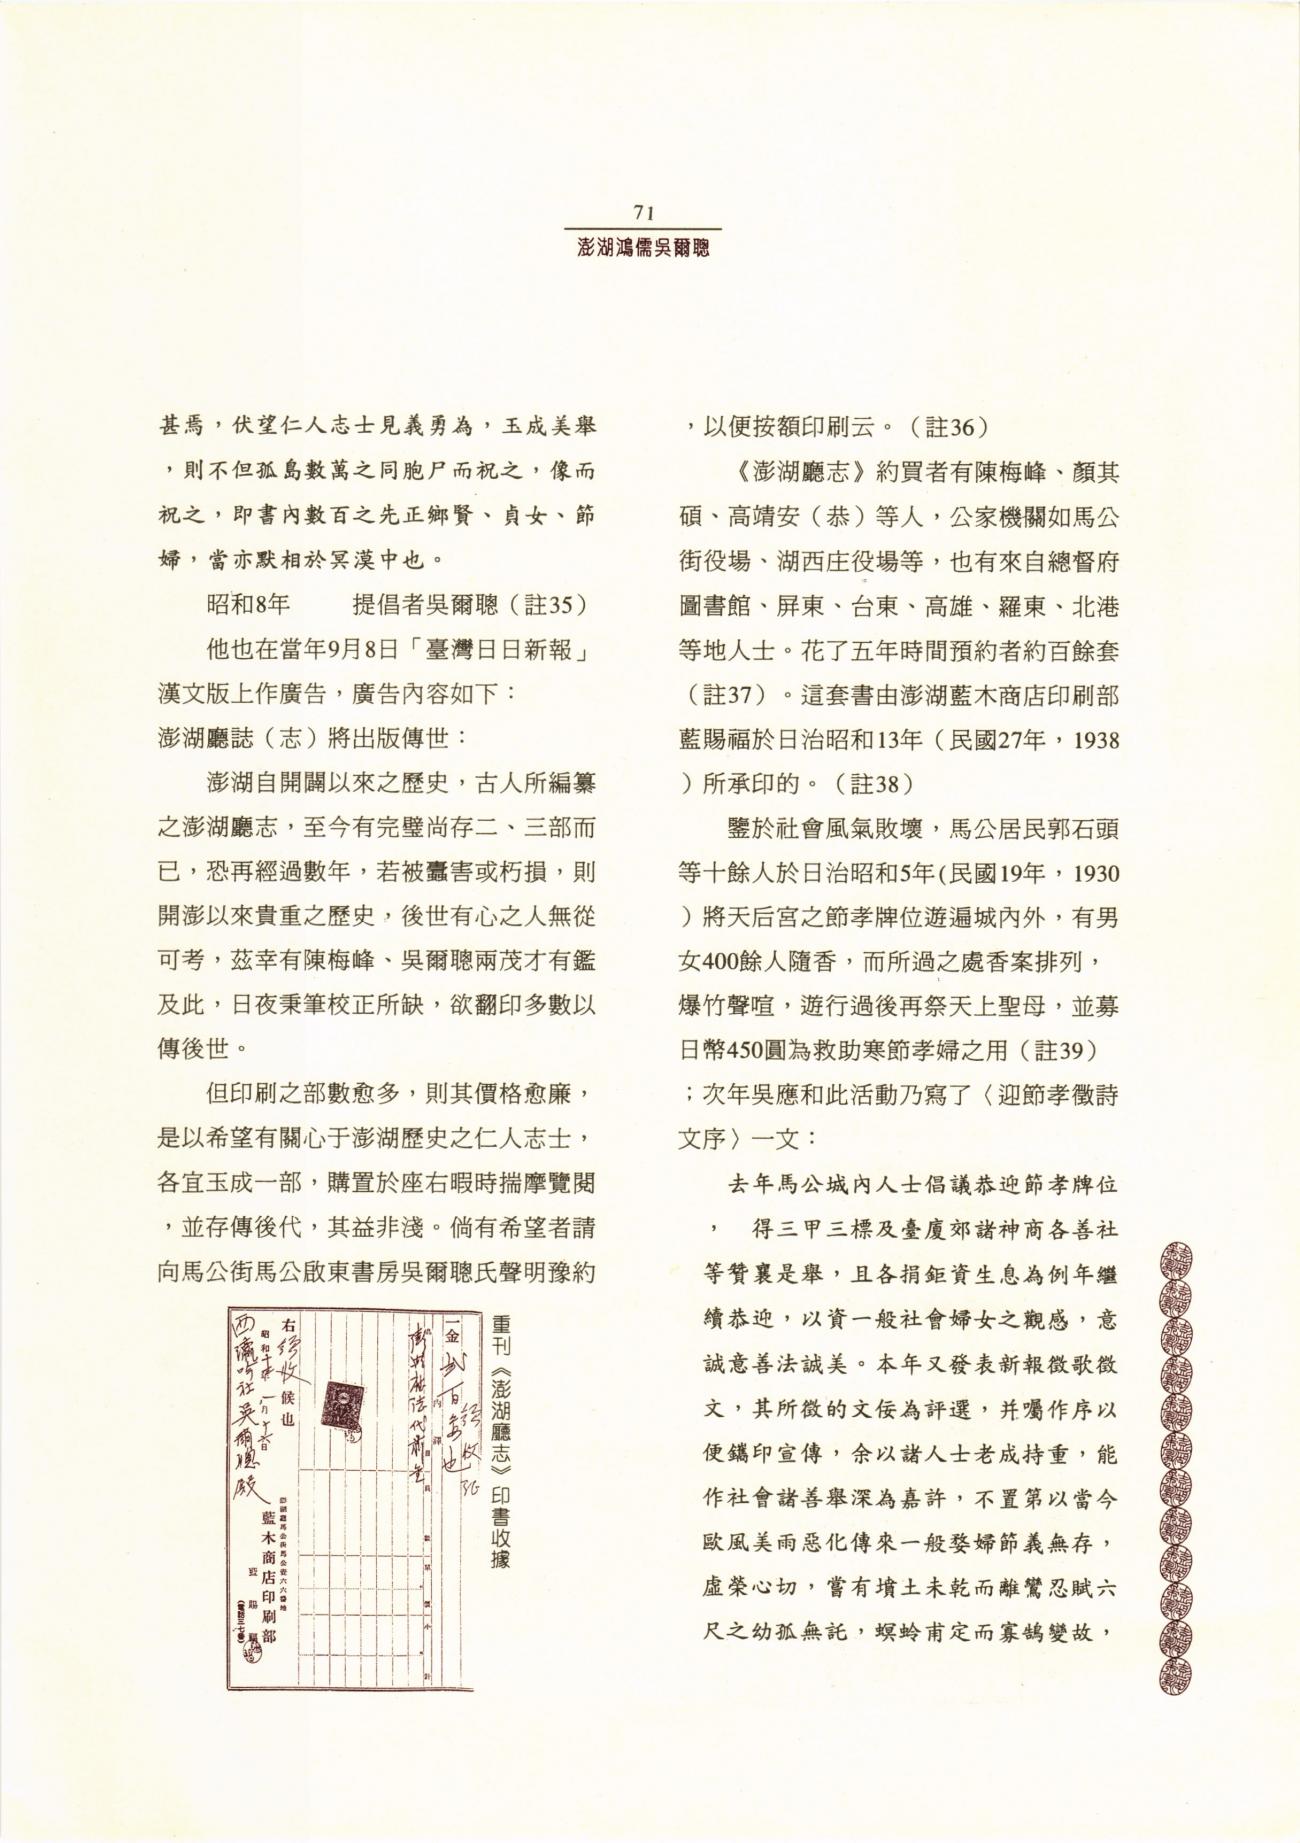 71
澎湖鴻儒吳爾聰
甚焉，伏望仁人志士見義勇為，玉成美舉
，則不但孤島數萬之同胞尸而祝之，像而
祝之，即書內數百之先正鄉賢、貞女、節
婦，當亦默相於冥漠中也。
昭和8年　　提倡者吳爾聰（註35）
他也在當年9月8日「臺灣日日新報」
漢文版上作廣告，廣告內容如下：
澎湖廳誌（志）將出版傳世：
澎湖自開闢以來之歷史，古人所編纂
之澎湖廳志，至今有完璧尚存二、三部而
已，恐再經過數年，若被蠹害或朽損，則
開澎以來貴重之歷史，後世有心之人無從
可考，茲幸有陳梅峰、吳爾聰兩茂才有鑑
及此，日夜秉筆校正所缺，欲翻印多數以
傳後世。
但印刷之部數愈多，則其價格愈廉，
是以希望有關心于澎湖歷史之仁人志士，
各宜玉成一部，購置於座右暇時揣摩覽閱
，並存傳後代，其益非淺。倘有希望者請
向馬公街馬公啟東書房吳爾聰氏聲明豫約
重刊《澎湖廳志》印書收據
一金
內譯
右
候也
昭和
藍木商店印刷部
，以便按額印刷云。（註36）
《澎湖廳志》約買者有陳梅峰、顏其
碩、高靖安（恭）等人，公家機關如馬公
街役場、湖西庄役場等，也有來自總督府
圖書館、屏東、台東、高雄、羅東、北港
等地人士。花了五年時間預約者約百餘套
（註37）。這套書由澎湖藍木商店印刷部
藍賜福於日治昭和13年（民國27年，1938
）所承印的。（註38）
鑒於社會風氣敗壞，馬公居民郭石頭
等十餘人於日治昭和5年(民國19年，1930
）將天后宮之節孝牌位遊遍城內外，有男
女400餘人隨香，而所過之處香案排列，
爆竹聲喧，遊行過後再祭天上聖母，並募
日幣450圓為救助寒節孝婦之用（註39）
；次年吳應和此活動乃寫了〈迎節孝徵詩
文序〉一文：
去年馬公城內人士倡議恭迎節孝牌位
，　得三甲三標及臺廈郊諸神商各善社
等贊襄是舉，且各捐鉅資生息為例年繼
續恭迎，以資一般社會婦女之觀感，意
誠意善法誠美。本年又發表新報徵歌徵
文，其所徵的文佞為評選，并囑作序以
便鐫印宣傳，余以諸人士老成持重，能
作社會諸善舉深為嘉許，不置第以當今
歐風美雨惡化傳來一般婺婦節義無存，
虛榮心切，嘗有墳土未乾而離鸞忍賦六
尺之幼孤無託，螟蛉甫定而寡鵠變故，